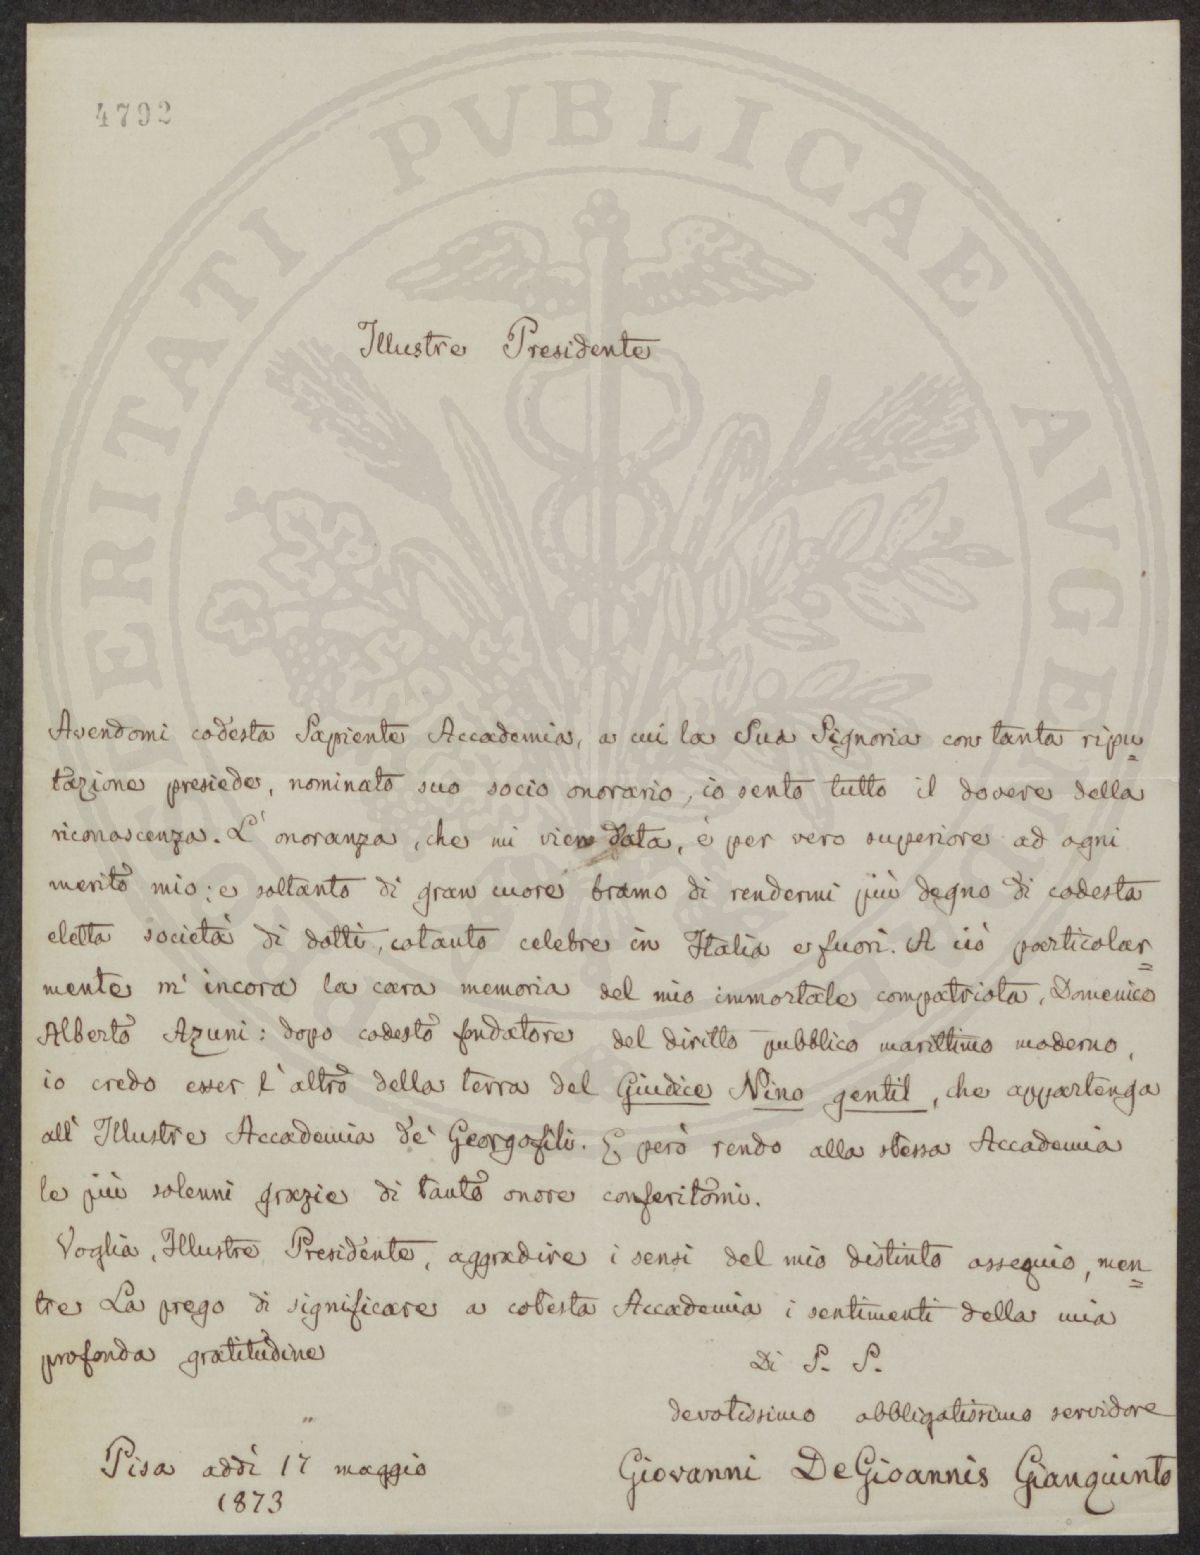 4792
PROSPERITATI PVBLICAE AVGENDAE
Illustre Presidente
Avendomi codesta Sapiente Accademia, a cui la Sua Signoria con tanta ripu=
tazione presiede, nominato suo socio onorario, io sento tutto il dovere della
riconoscenza. L' onoranza, che mi vien data, è per vero superiore ad ogni
merito mio; e soltanto di gran cuore bramo di rendermi più degno di codesta
eletta società di dotti, cotanto celebre in Italia e fuori. A ciò particolar=
mente m' incora la cara memoria del mio immortale compatriota, Domenico
Alberto Azuni: dopo codesto fondatore del diritto pubblico marittimo moderno,
io credo esser l' altro della terra del Giudice Nino gentil, che appartenga
all' Illustre Accademia de' Georgofili. E però rendo alla stessa Accademia
le più solenni grazie di tanto onore conferitomi.
Voglia, Illustre Presidente, aggradire i sensi del mio distinto ossequio, men=
tre La prego di significare a cotesta Accademia i sentimenti della mia
profonda gratitudine
Di S. S.
devotissimo obbligatissimo servidore
Pisa addì 17 maggio
1873
Giovanni DeGioannis Gianquinto